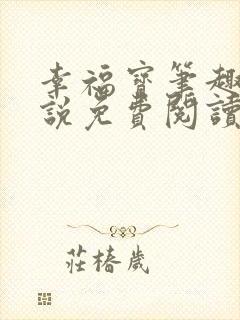 幸福寶筆趣
說免費閱讀
莊椿歲